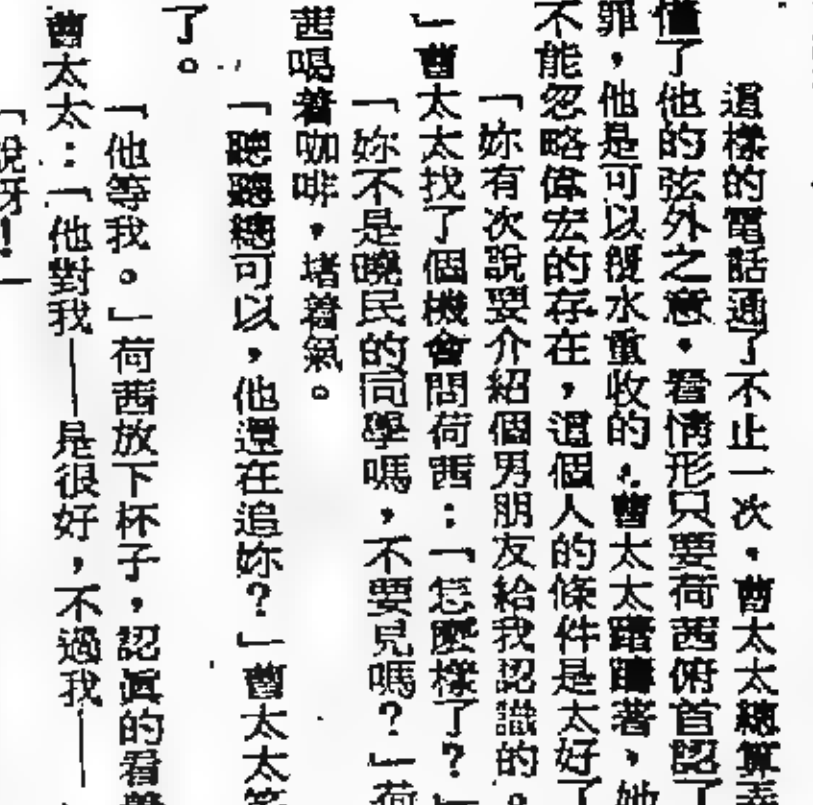 這樣的電話通了不止一次。曹太太總算弄
懂了他的弦外之意。看情形只要荷茜俯首認了
罪,他是可以覆水重收的。曹太太躊躇著,她
不能忽略偉宏的存在,這個人的條件是太好了
「妳有次說要介紹個男朋友給我認識的。
」曹太太找了個機會問荷茜:「怎麼樣了?」
「妳不是曉民的同學嗎,不要見嗎?」荷
茜喝着咖啡,堵着氣。
「聽聽總可以,他還在追妳?」曹太太笑
了。
「他等我。」荷茜放下杯子,認眞的看着
曹太太:「他對我——是很好,不過我——
「說呀!」